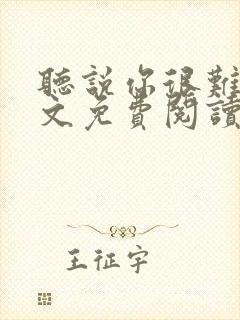 聽說你很難
文免費閱讀
王征宇